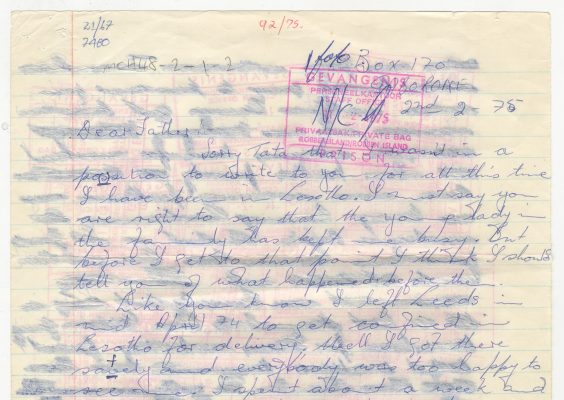 21/67
2460
92/75.
MCH48-2-1-2
Box 170
GEVANGENIS
PRIVAATSAK/PRIVATE BAG
ROBBENEILAND/ROBBEN ISLAND
PRISON
2nd 2 75
Dear Father
Sorry Tata that I wasn't in a
position to write to you for all this time
I have been in Lesotho. I must say you
are right to say that the young lady in
the family has kept me busy. But
before I get to that point I think I should
tell you of what happened before then.
Like you know I left Leeds in
mid April 74 to get confined in
Lesotho for delivery, well I got there
safely and everybody was too happy to
see me. I spent about a week and